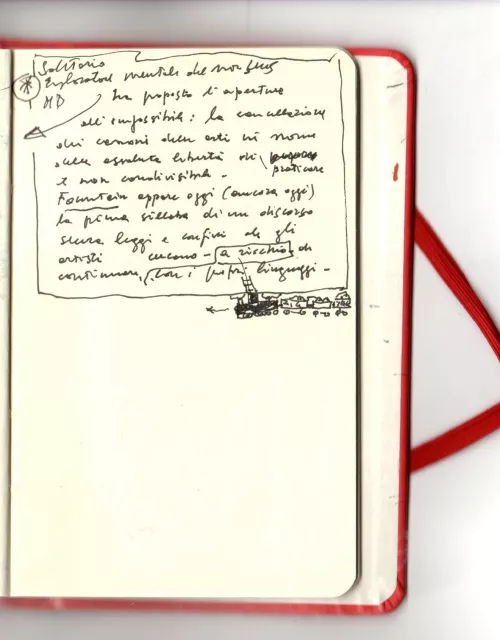 Solitario
Esploratore mentale del non
MD ha proposto l'apertura
all'impossibile: la cancellazione
dei canoni delle arti in nome
della assoluta libertà di
praticare
e non condivisibile -
Fountain appare oggi (ancora oggi)
la prima sillaba di un discorso
senza leggi e confini che gli
artisti cercano - a rischio di
continuare, con i propri linguaggi -